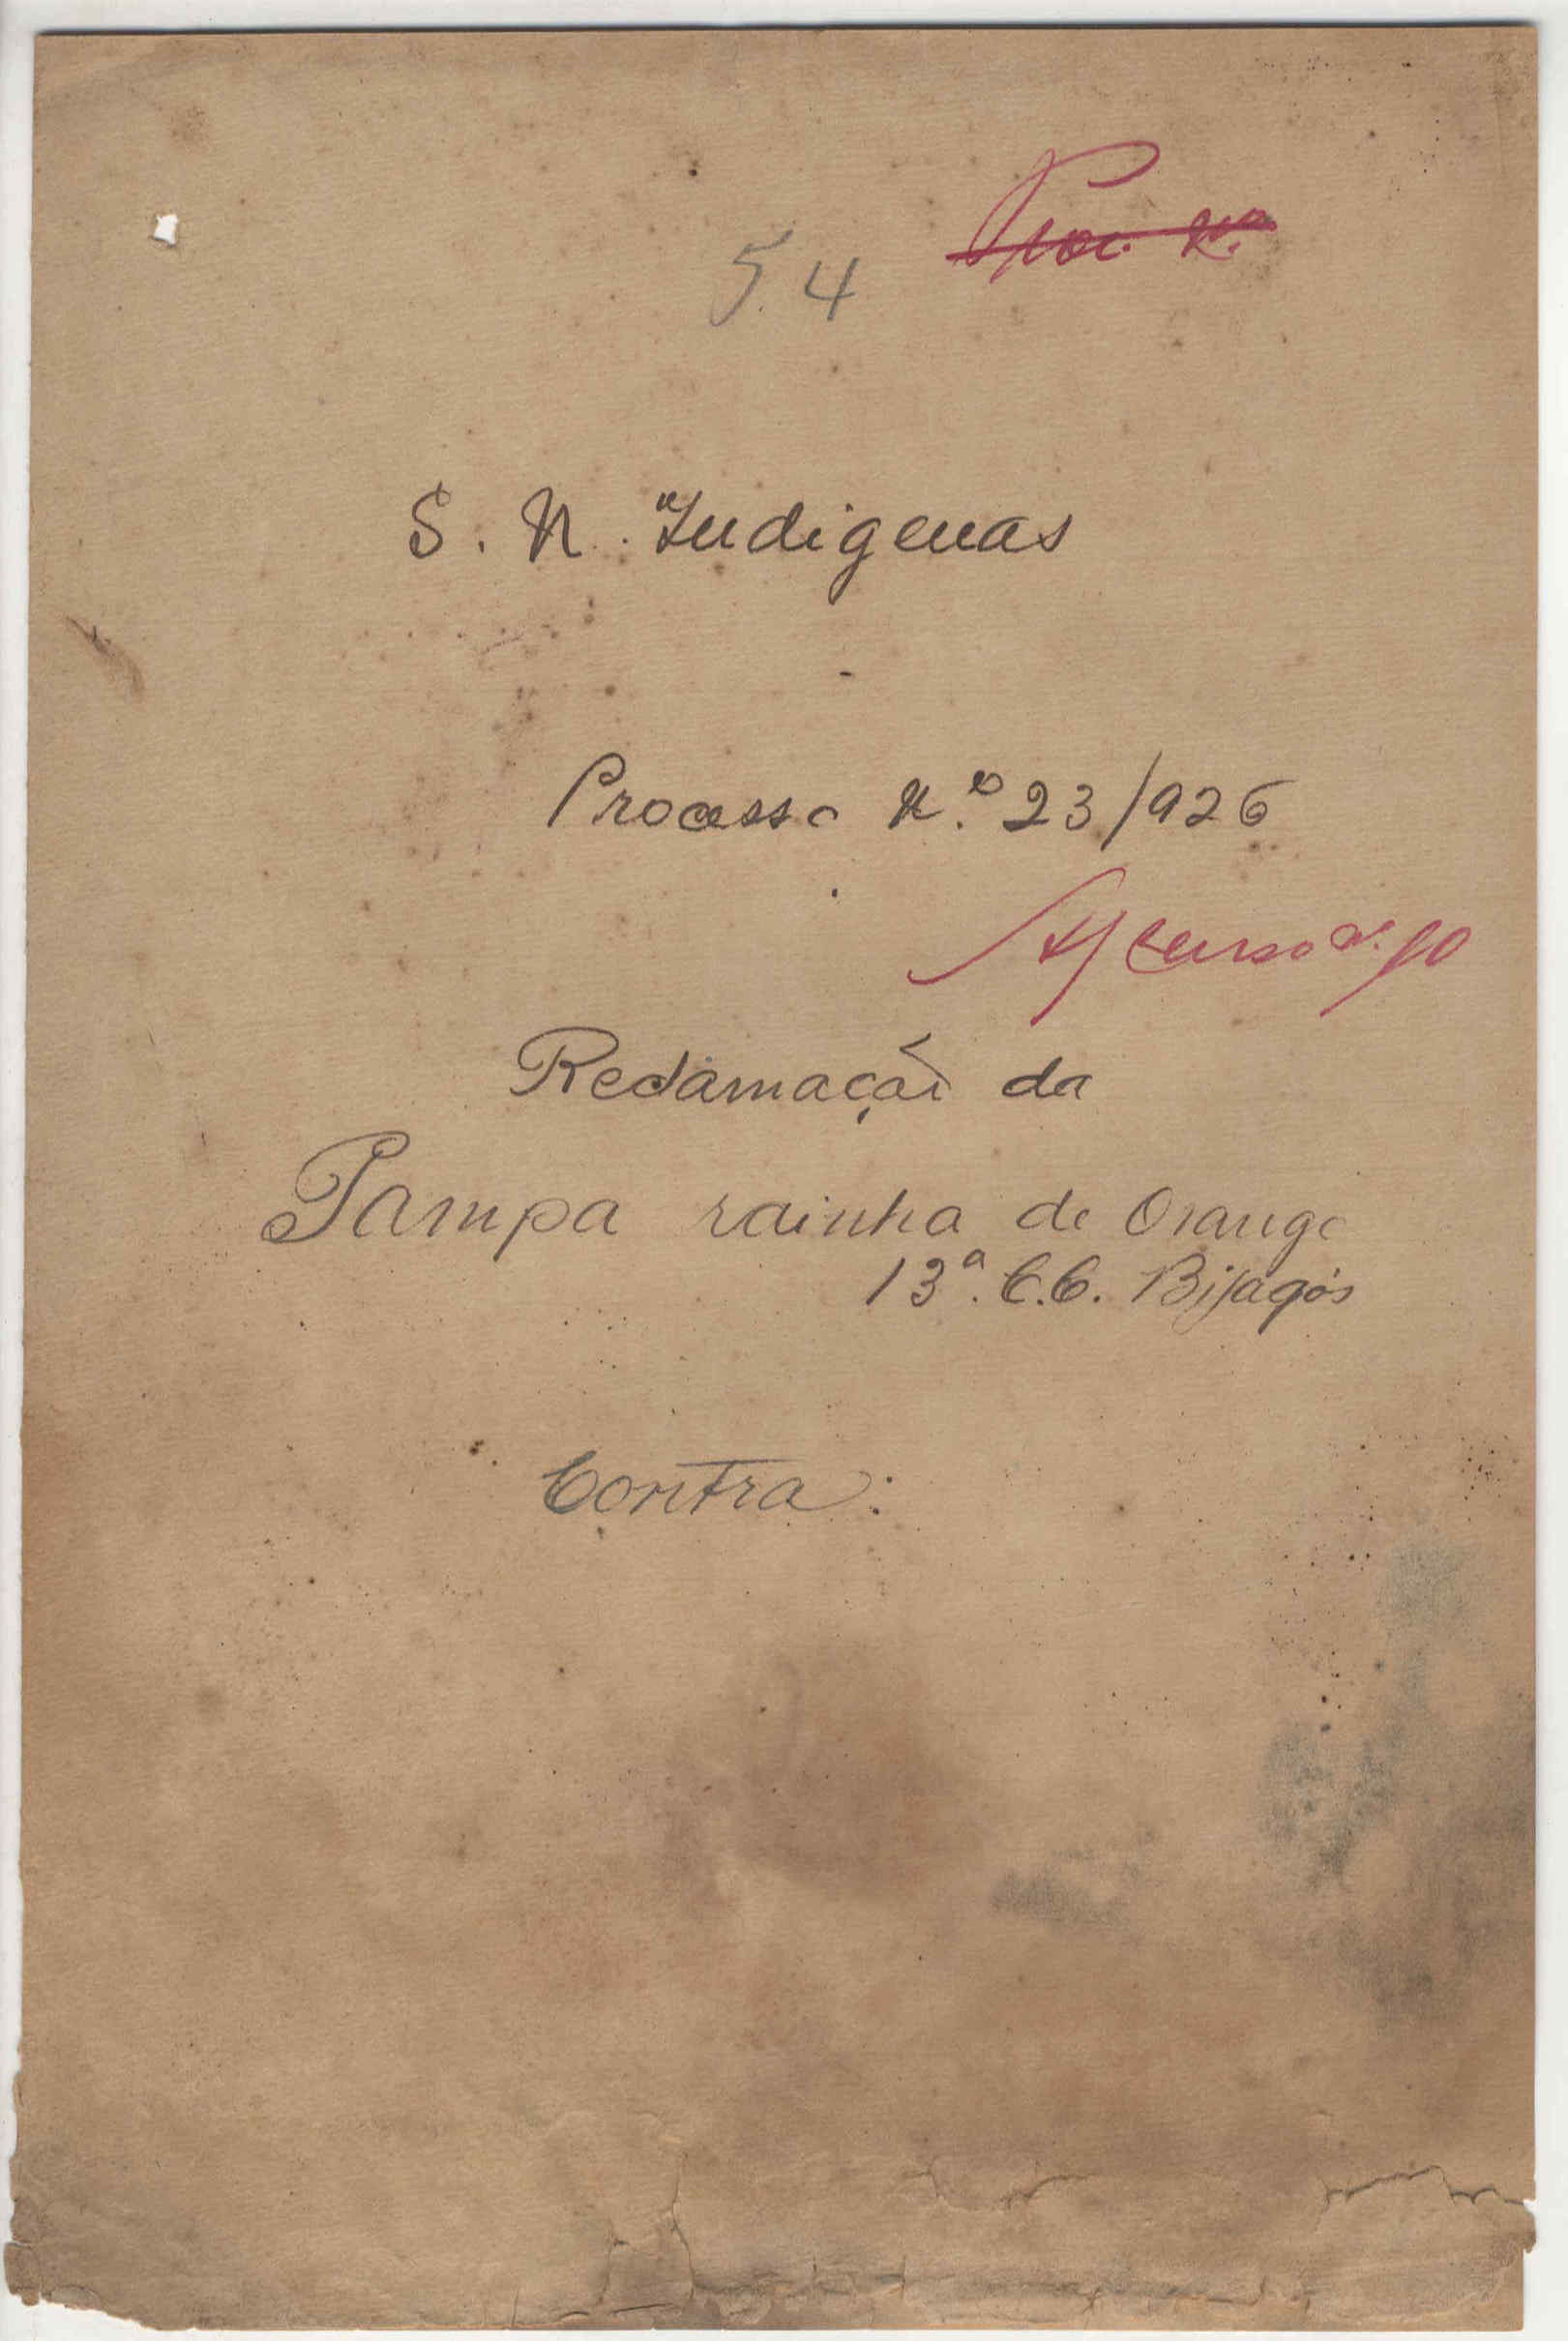 Proc. N.º
54
S. N. Indigenas
Processo N.º 23/926
Reclamação da
Pampa rainha de Orange
13ª. C.C. Bijagós
Contra: